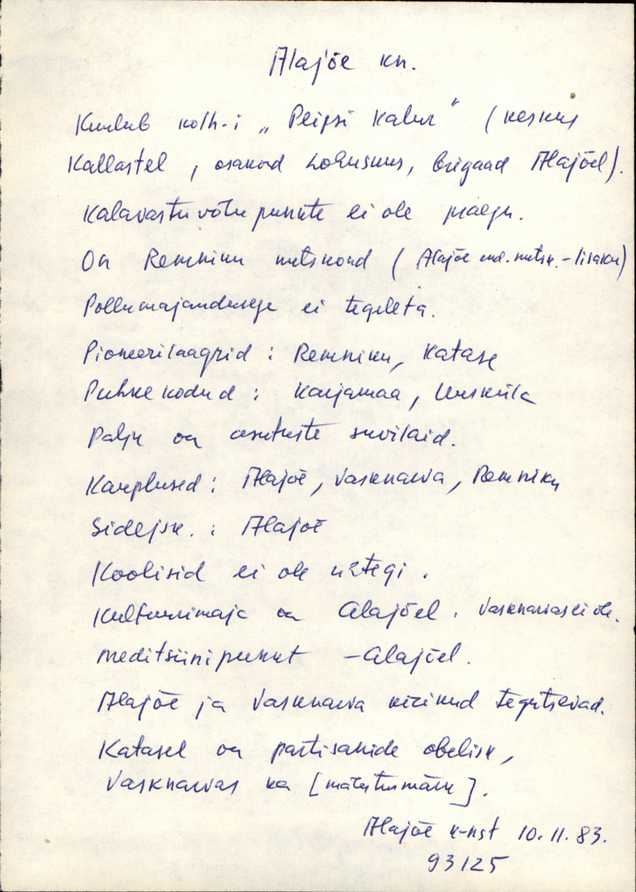 Alajõe kn.
Kuulub kolh-i „Peipsi Kalur" (keskus
Kallastel, osakond Lohusuus, brigaad Alajõel).
Kalavastuvõtu punkte ei ole praegu.
On Remniku metskond (Alajõe end. metsk. - Iisaku)
Põllumajandusega ei tegelta.
Pioneerilaagrid: Remniku, Katase
Puhkekodud: Karjamaa, Uusküla
Palju on asutuste suvilaid.
Kauplused: Alajõe, Vasknarva, Remniku
Sidejsk.: Alajõe
Koolisid ei ole ühtegi.
Kultuurimaja on Alajõel. Vasknarvas ei ole.
Meditsiinipunkt - Alajõel.
Alajõe ja Vasknarva kirikud tegutsevad.
Katasel on partisanide obelisk,
Vasknarvas ka [mälestusmärk].
Alajõe k-nst 10.11.83.
93125